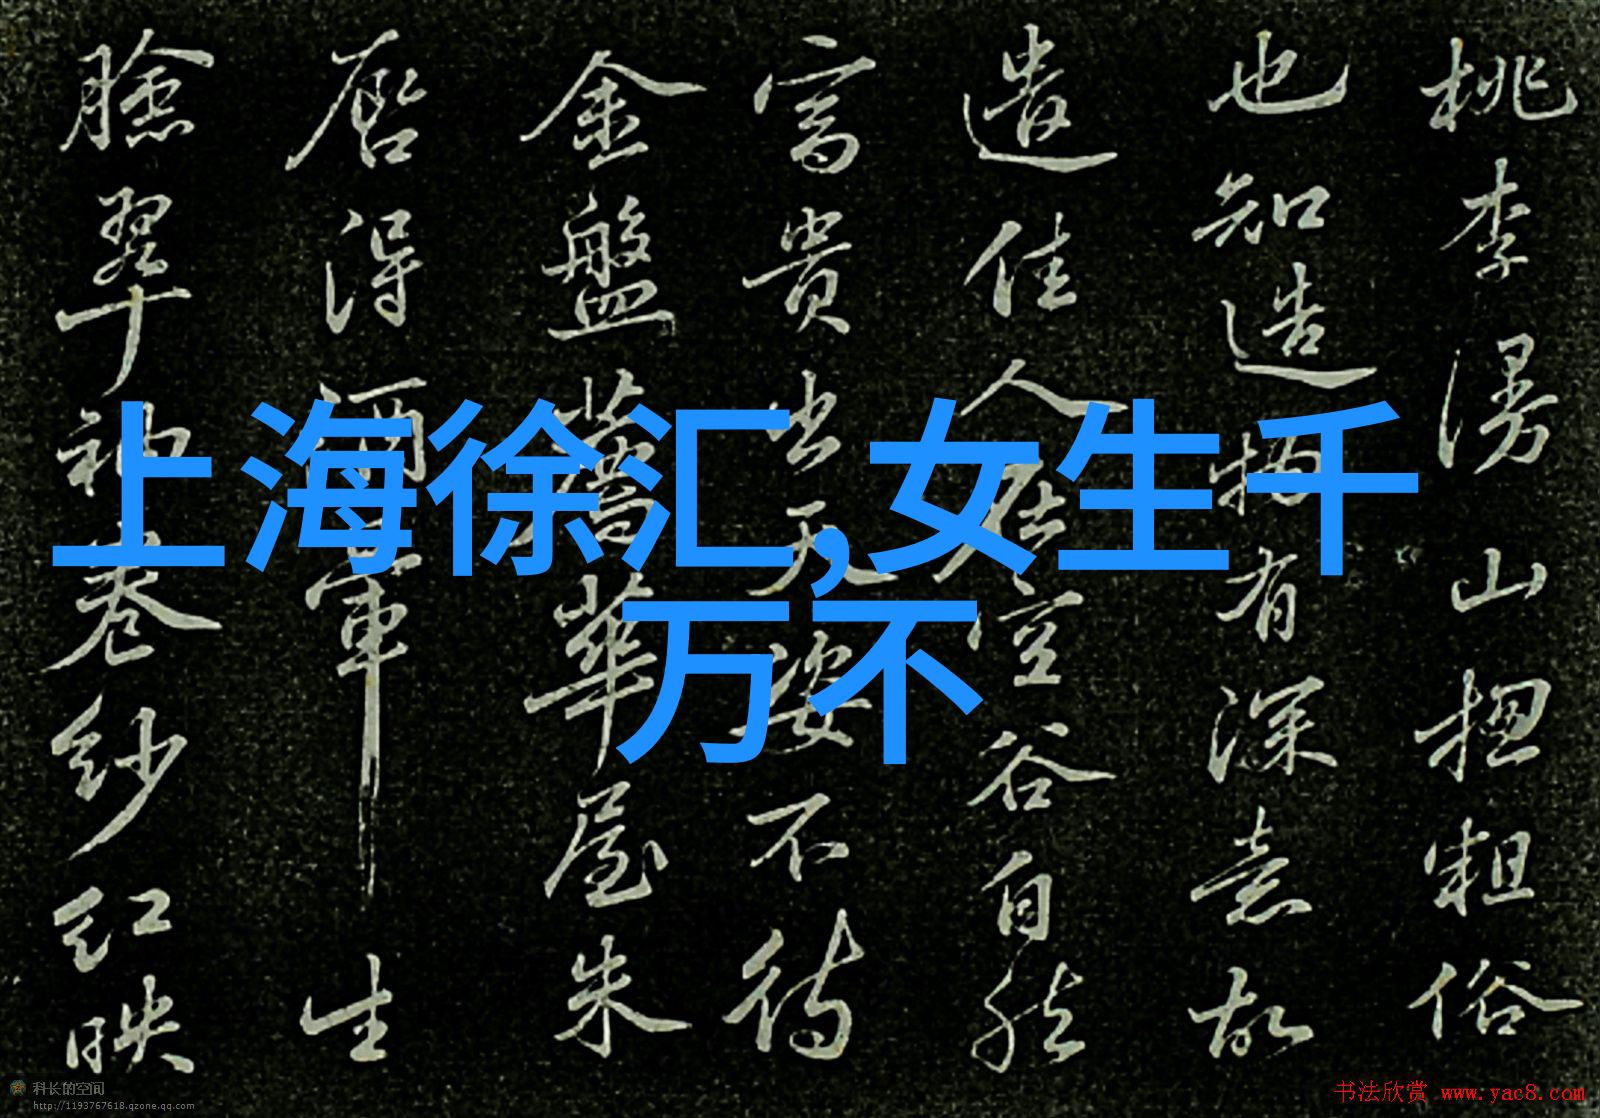 上海徐汇,女生千
万不
桃李漫山揔粗俗
也知造物有深意故
遣佳人在空谷自然
富貴出天姿不待
金盤薦華屋朱
唇得酒暈生
臉翠袖卷紗紅映
科长的空间
http://1193767618.qzone.qq.com
书法欣赏 www.yac8.com